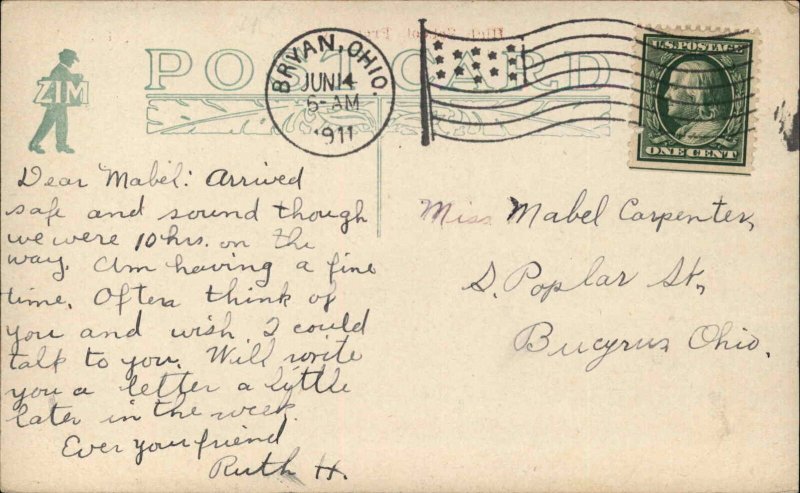 POST CARD
ZIM
BRYAN, OHIO.
JUN 14
5-AM
1911
U.S. POSTAGE
ONE CENT
Dear Mabel: Arrived
safe and sound though
we were 10 hrs. on the
way. Am having a fine
time. Often think of
you and wish I could
talk to you. Will write
you a letter a little
later in the week.
Ever your friend
Ruth H.
Miss Mabel Carpenter,
S. Poplar St,
Bucyrus Ohio.